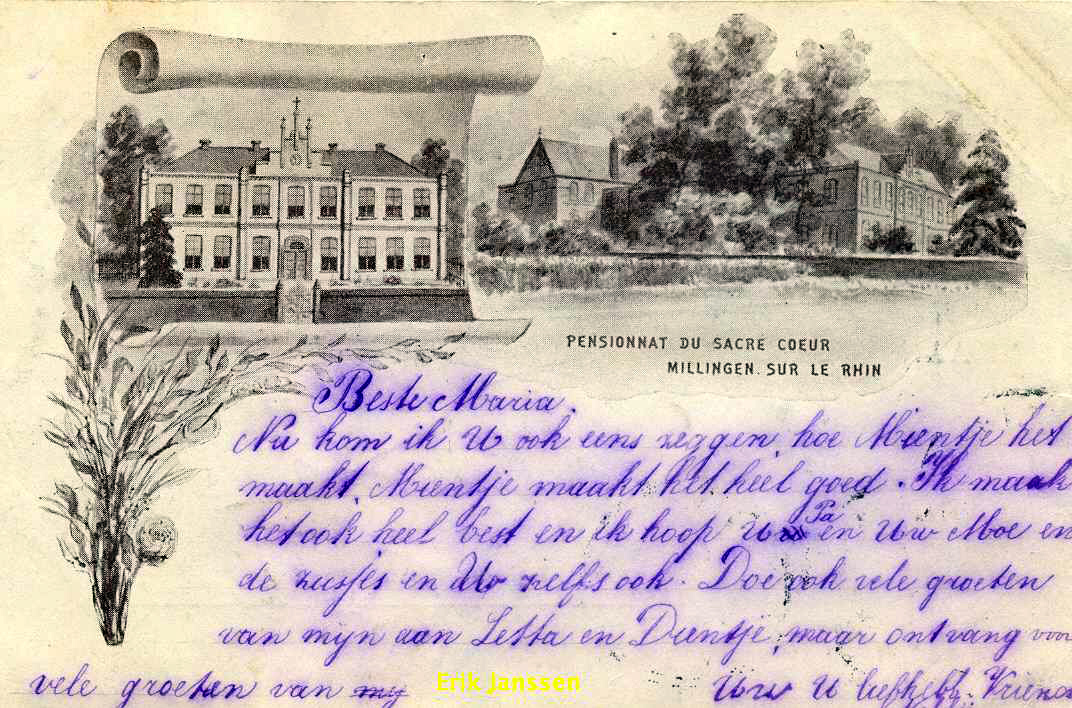 PENSIONNAT DU SACRE COEUR
MILLINGEN. SUR LE RHIN
Beste Maria.
Nu kom ik U ook eens zeggen, hoe Mientje het
maakt. Mientje maakt het heel goed. Ik maak
het ook heel best en ik hoop Uw Pa en Uw Moe en
de zusjes en Uw zelfs ook. Doe ook vele groeten
van mijn aan Letta en Dientje, maar ontvang voor
vele groeten van my Erik Janssen Uw U liefheb. Vriend